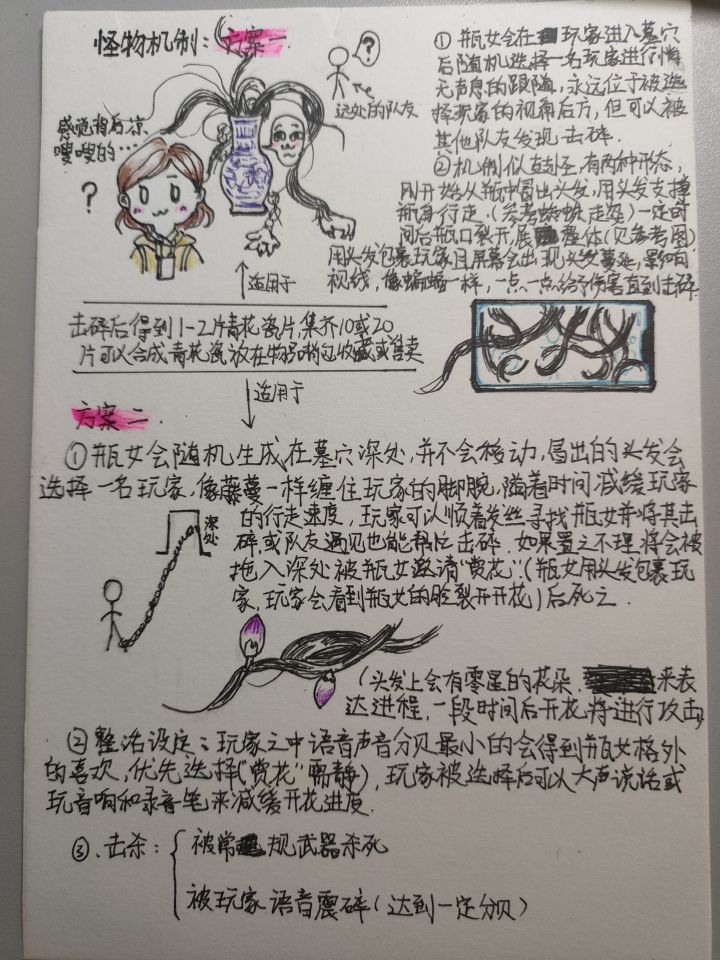 怪物机制：方案一
?
远处的队友
感觉背后凉
嗖嗖的…
?
①瓶女会在玩家进入墓穴
后随机选择一名玩家进行悄
无声息的跟随，永远位于被选
择玩家的视角后方，但可以被
其他队友发现击碎.
②机制似鼓圣，有两种形态，
刚开始从瓶中冒出头发，用头发支撑
瓶身行走.(参考蜘蛛走姿)一定时
间后瓶口裂开，展整体(见参考图)
用头发包裹玩家且屏幕会出现头发蔓延，影响
视线，像蝙蝠一样，一点一点给予伤害直到击碎
适用于
击碎后得到1-2片青花瓷片，集齐10或20
片可以合成青花瓷放在物品收藏或售卖
适用于
方案二
①瓶女会随机生成在墓穴深处，并不会移动，冒出的头发会
选择一名玩家，像藤蔓一样缠住玩家的脚腕，随着时间减缓玩家
的行走速度，玩家可以顺着发丝寻找瓶女并将其击
碎或队友遇见也能帮忙击碎.如果置之不理将会被
拖入深处被瓶女邀请"赏花"(瓶女用头发包裹玩
家，玩家会看到瓶女的脸裂开开花)后死亡.
深处
(头发上会有零星的花朵.来表
达进程，一段时间后开花将进行攻击)
②整活设定：玩家之中语音声音分贝最小的会得到瓶女格外
的喜欢，优先选择("赏花"需静)，玩家被选择后可以大声说话或
玩音响和录音笔来减缓开花进度.
③.击杀：
被常规武器杀死
被玩家语音震碎(达到一定分贝)